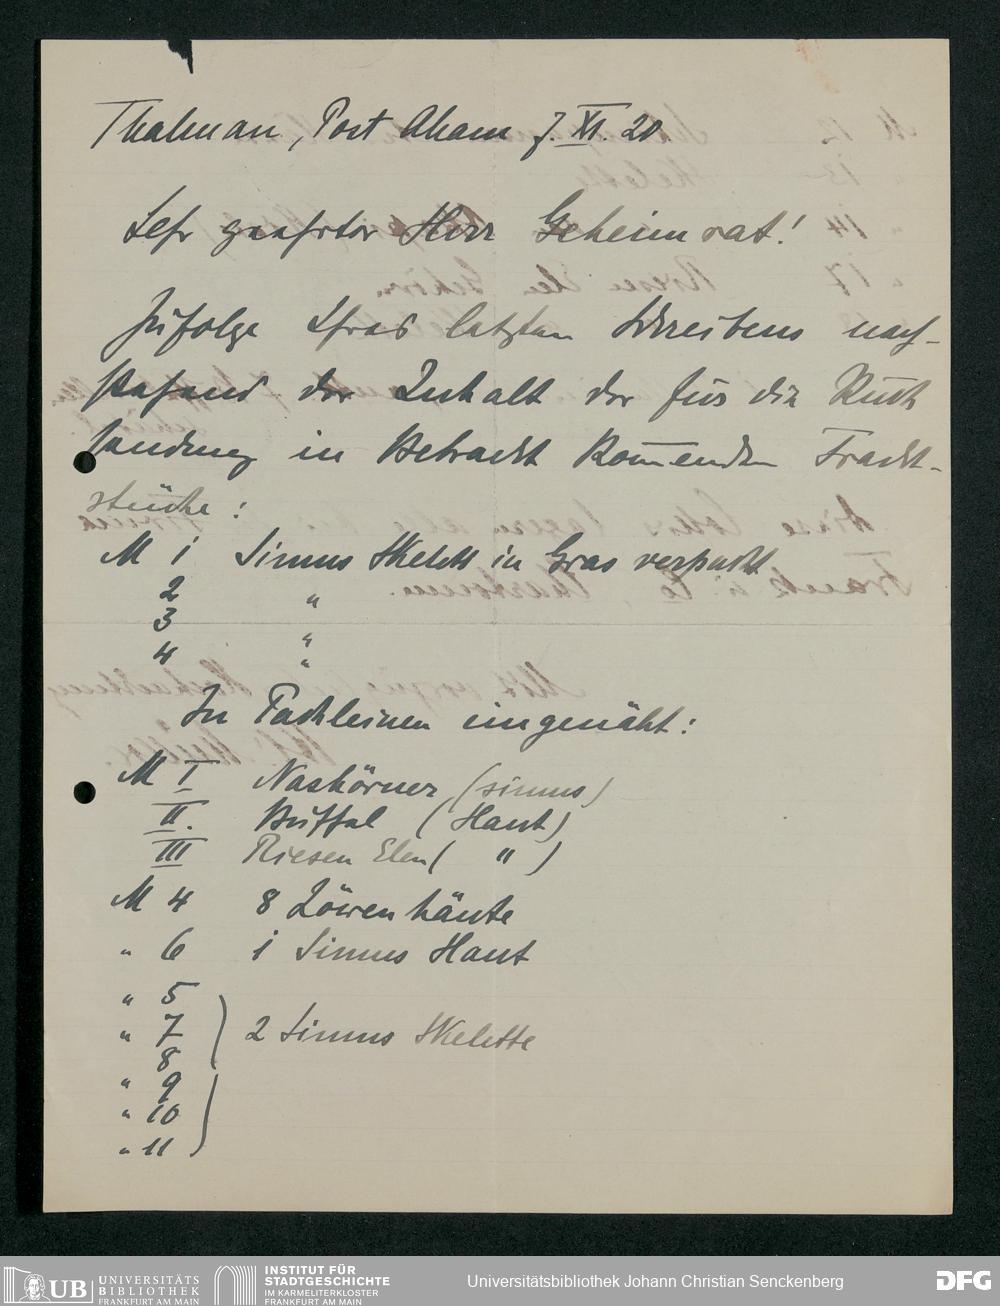 Thalman, Post Aham 7. XI. 20
Sehr geehrter Herr Geheimrat!
Zufolge Ihres letzten Schreibens nach-
stehend der Inhalt der für die Rück
sendung in Betracht Kommenden Fracht-
stücke:
M 1 Simus Skelett in Gras verpackt
2 "
3 "
4 "
In Packleinen eingenäht:
M I Nashörner (simus)
II. Büffel (Haut)
III Riesen Elen ( " )
M 4 8 Löwenhäute
" 6 1 Simus Haut
" 5
" 7 2 Simus Skelette
8
" 9
" 10
" 11
UB UNIVERSITÄTS
BIBLIOTHEK
FRANKFURT AM MAIN
INSTITUT FÜR
STADTGESCHICHTE
IM KARMELITERKLOSTER
FRANKFURT AM MAIN
Universitätsbibliothek Johann Christian Senckenberg
DFG